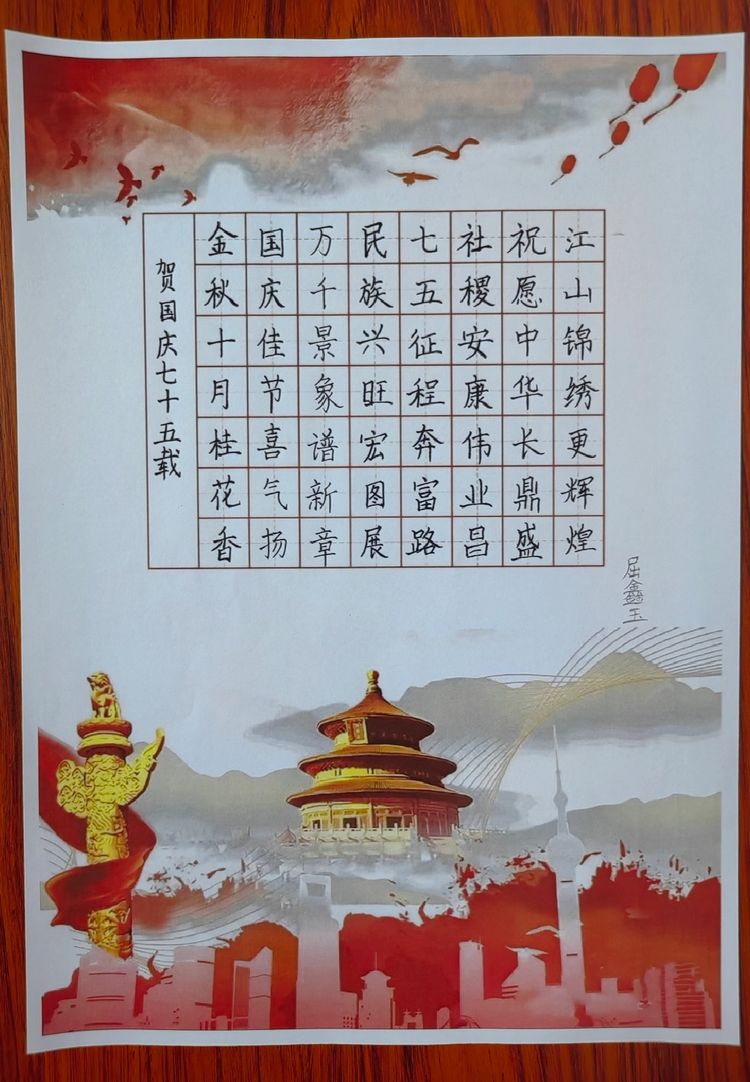 贺国庆七十五载
金秋十月桂花香
国庆佳节喜气扬
万千景象谱新章
民族兴旺宏图展
七五征程奔富路
社稷安康伟业昌
祝愿中华长鼎盛
江山锦绣更辉煌
屈鑫玉